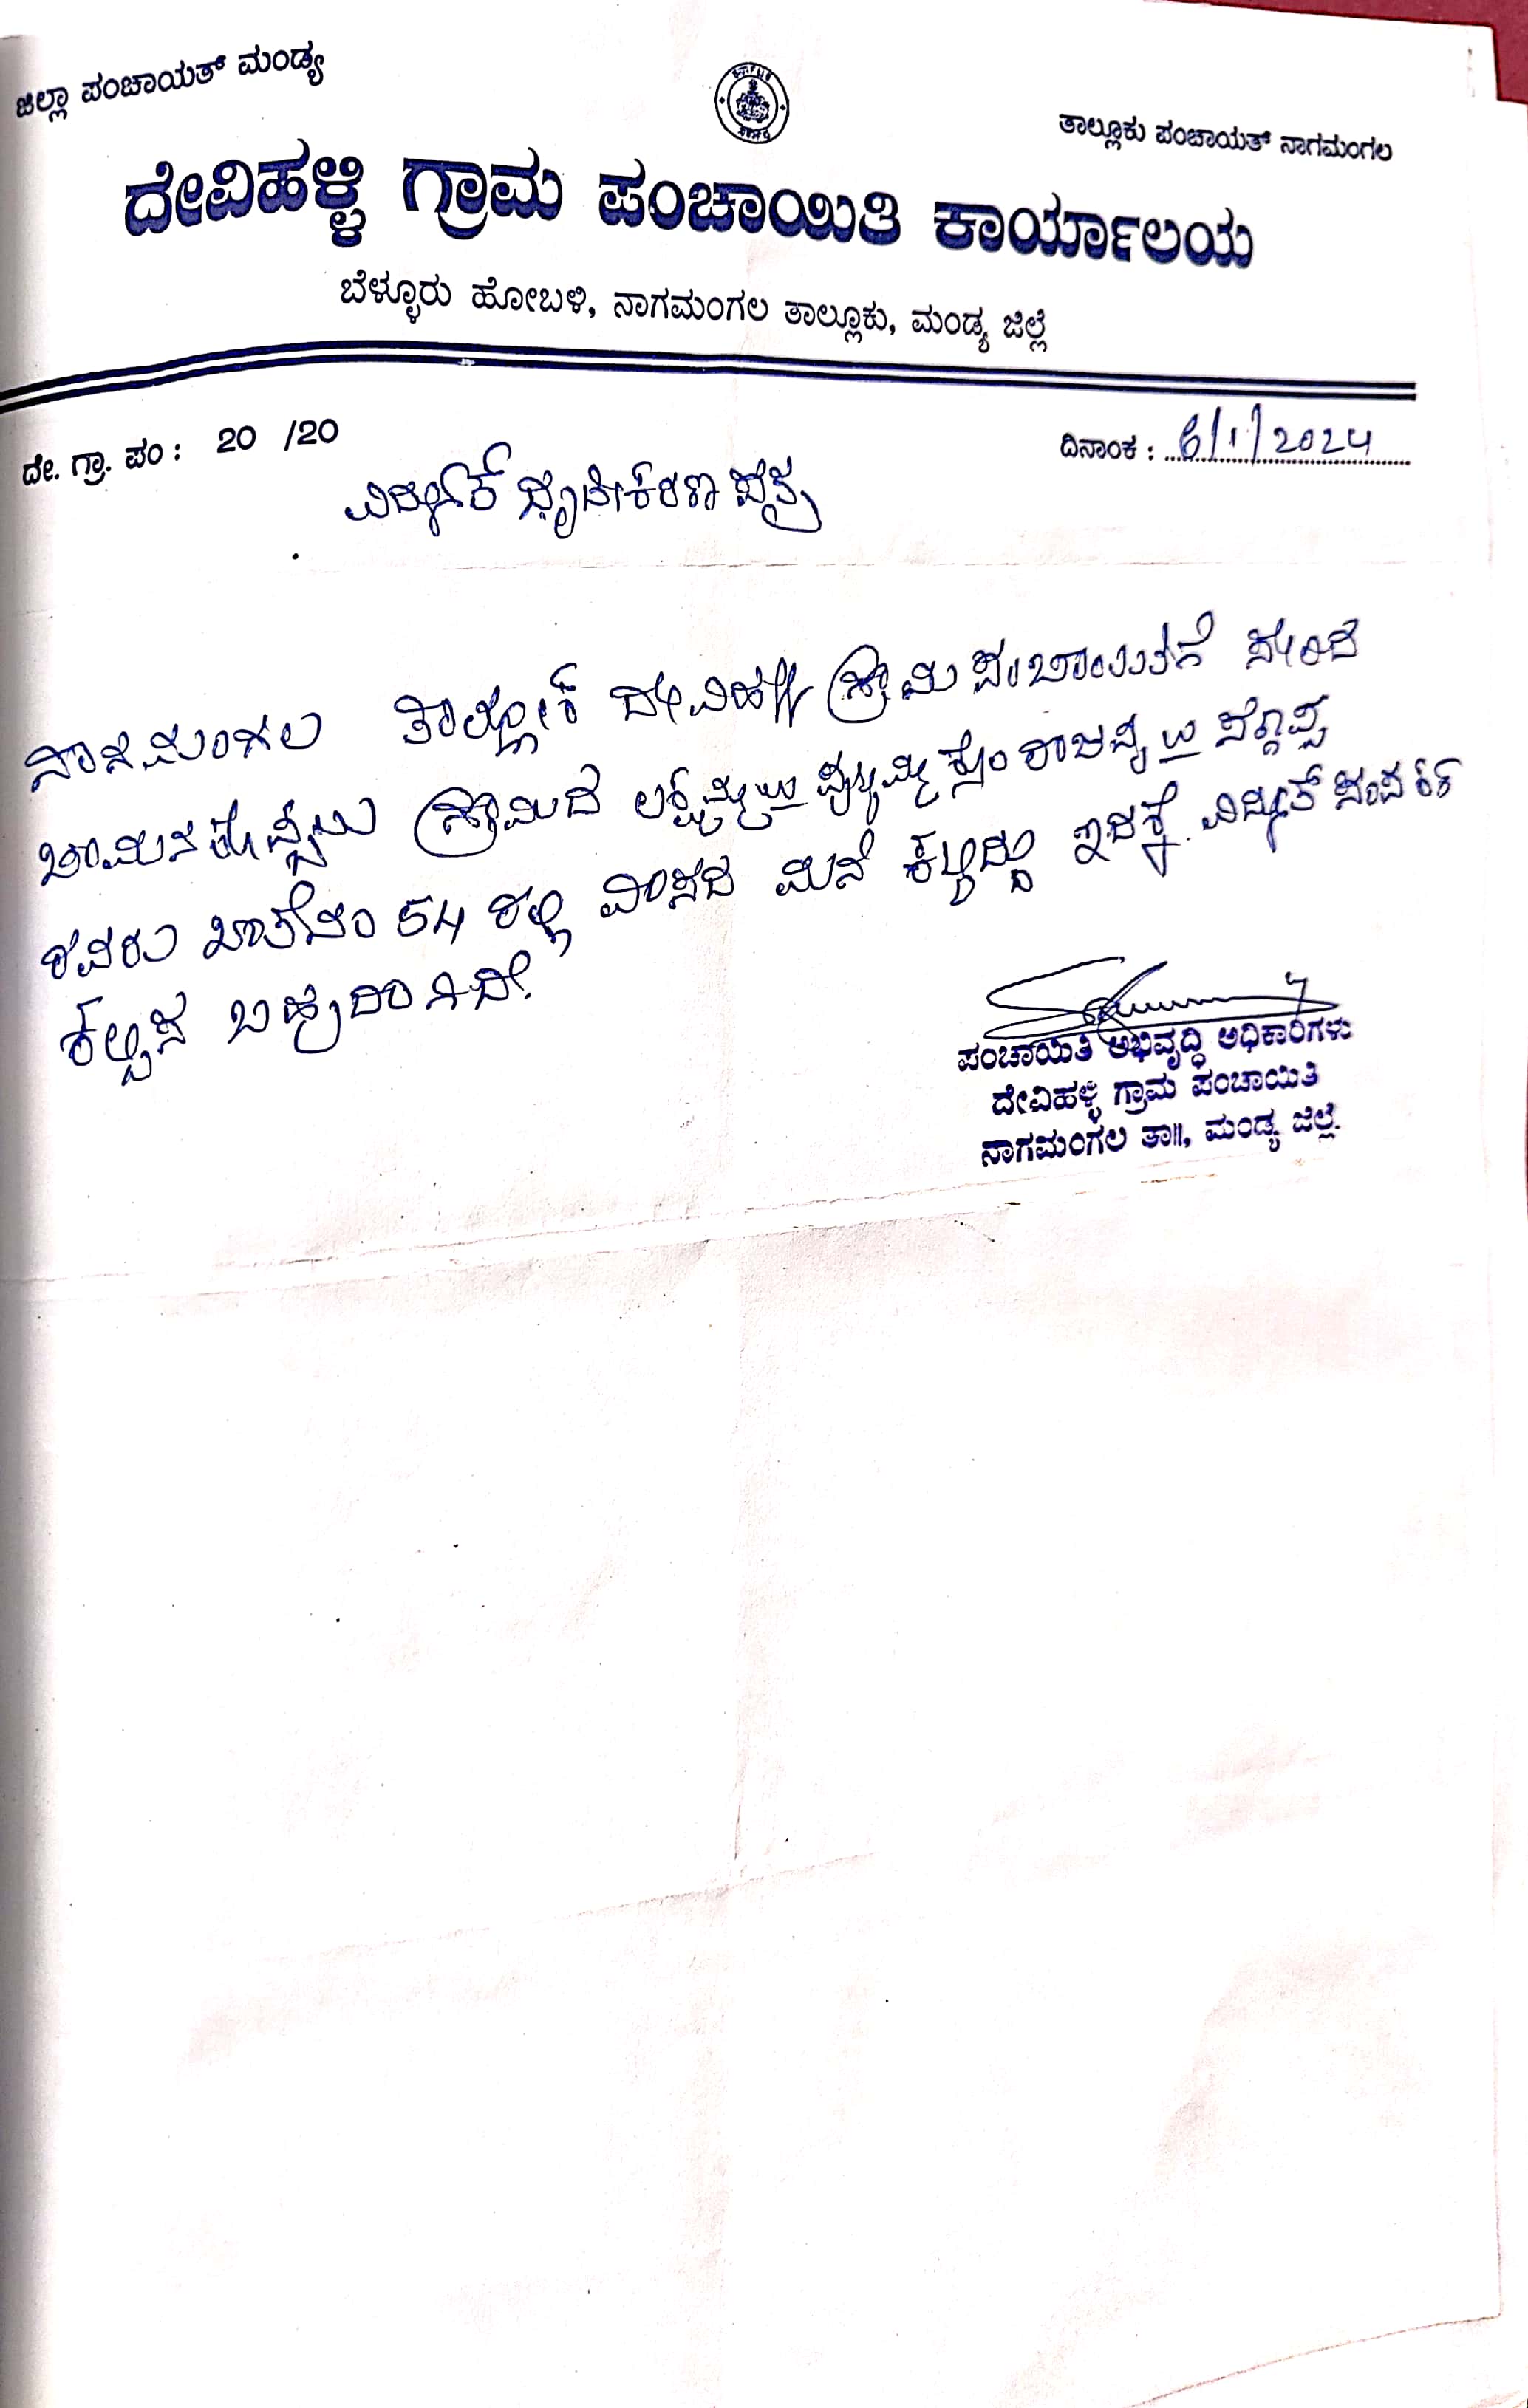 ಜಿಲ್ಲಾ ಪಂಚಾಯತ್ ಮಂಡ್ಯ
ತಾಲ್ಲೂಕು ಪಂಚಾಯತ್ ನಾಗಮಂಗಲ
ದೇವಿಹಳ್ಳಿ ಗ್ರಾಮ ಪಂಚಾಯಿತಿ ಕಾರ್ಯಾಲಯ
ಬೆಳ್ಳೂರು ಹೋಬಳಿ, ನಾಗಮಂಗಲ ತಾಲ್ಲೂಕು, ಮಂಡ್ಯ ಜಿಲ್ಲೆ
ದೇ. ಗ್ರಾ. ಪಂ : 20 /20
ದಿನಾಂಕ : 6/1/2024
ವಿದ್ಯುತ್ ದೃಢೀಕರಣ ಪತ್ರ
ನಾಗಮಂಗಲ ತಾಲ್ಲೋಕ್ ದೇವಿಹಳ್ಳಿ ಗ್ರಾಮ ಪಂಚಾಯಿತಿಗೆ ಸೇರಿದ
ಗ್ರಾಮದ ಲಕ್ಷ್ಮಮ್ಮ
ರವರು ಖಾತೆನಂ 54 ರಲ್ಲಿ ವಾಸದ ಮನೆ ಕಟ್ಟಿದ್ದು ಇದಕ್ಕೆ ವಿದ್ಯುತ್ ಸಂಪರ್ಕ
ಕಲ್ಪಿಸ ಬಹುದಾಗಿದೆ.
ಪಂಚಾಯಿತಿ ಅಭಿವೃದ್ಧಿ ಅಧಿಕಾರಿಗಳು
ದೇವಿಹಳ್ಳಿ ಗ್ರಾಮ ಪಂಚಾಯಿತಿ
ನಾಗಮಂಗಲ ತಾ॥, ಮಂಡ್ಯ ಜಿಲ್ಲೆ.